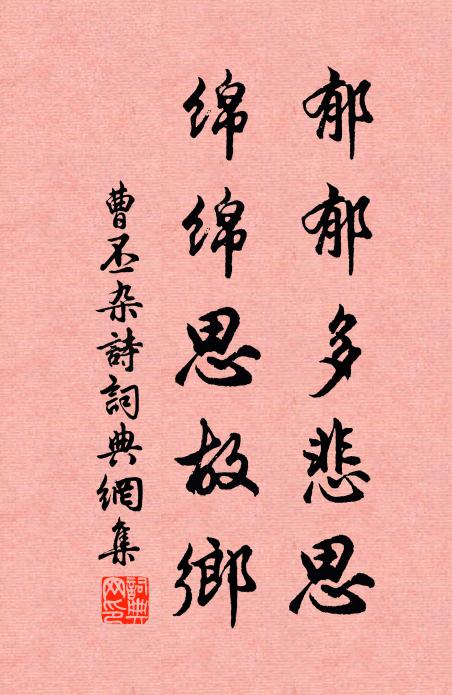 郁郁多悲思
绵绵思故鄉
曹丕杂詩詞典網集
詞典网印